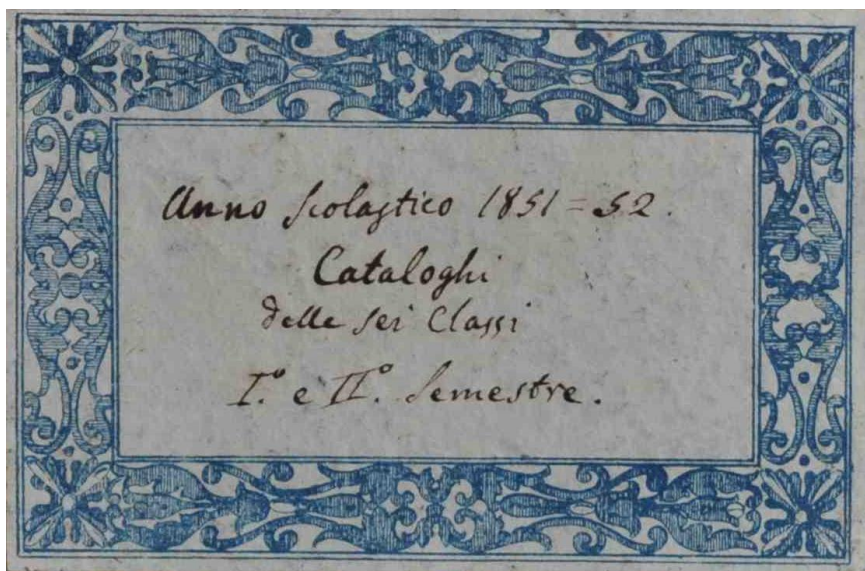 Anno scolastico 1851=52.
Cataloghi
delle sei Classi
I.° e II.° Semestre.